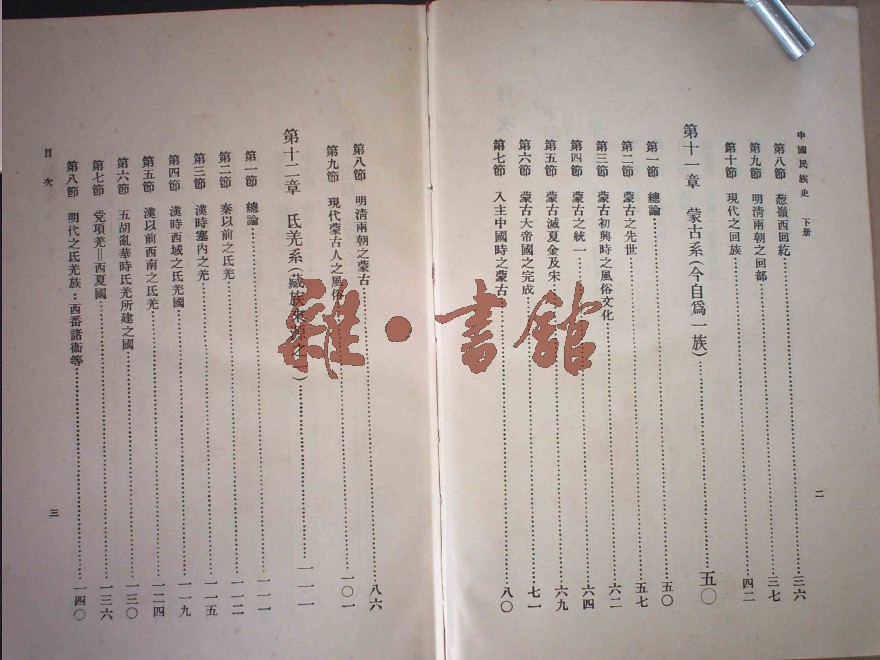 中國民族史 下册
第八節 葱嶺西回紇……三六
第九節 明清兩朝之回部……三七
第十節 現代之回族……四二
第十一章 蒙古系(今自爲一族)……五〇
第一節 總論……五〇
第二節 蒙古之先世……五七
第三節 蒙古初興時之風俗文化……六二
第四節 蒙古之統一……六四
第五節 蒙古滅夏金及宋……六九
第六節 蒙古大帝國之完成……七一
第七節 入主中國時之蒙古……八〇
二
第八節 明清兩朝之蒙古……八六
第九節 現代蒙古人之風俗……一〇一
第十二章 氐羌系(藏族來源之一)……一一一
第一節 總論……一一一
第二節 秦以前之氐羌……一一二
第三節 漢時塞內之羌……一一五
第四節 漢時西域之氐羌國……一一九
第五節 漢以前西南之氐羌……一二四
第六節 五胡亂華時氐羌所建之國……一三〇
第七節 党項羌＝西夏國……一三六
第八節 明代之氐羌族：西番諸衞等……一四〇
目次
三
雜·書館